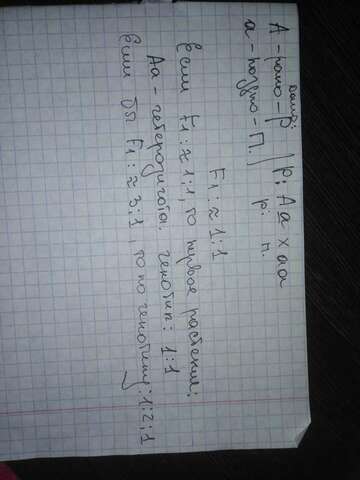 Дано:
А - рано - р.
а - поздно - п.
Р: Аа х аа
р. п.
F1: ≈ 1:1
Если F1: ≈ 1:1, то первое растение:
Аа - гетерозигота. генотип: 1:1
Если бы F1: ≈ 3:1, то по генотипу: 1:2:1